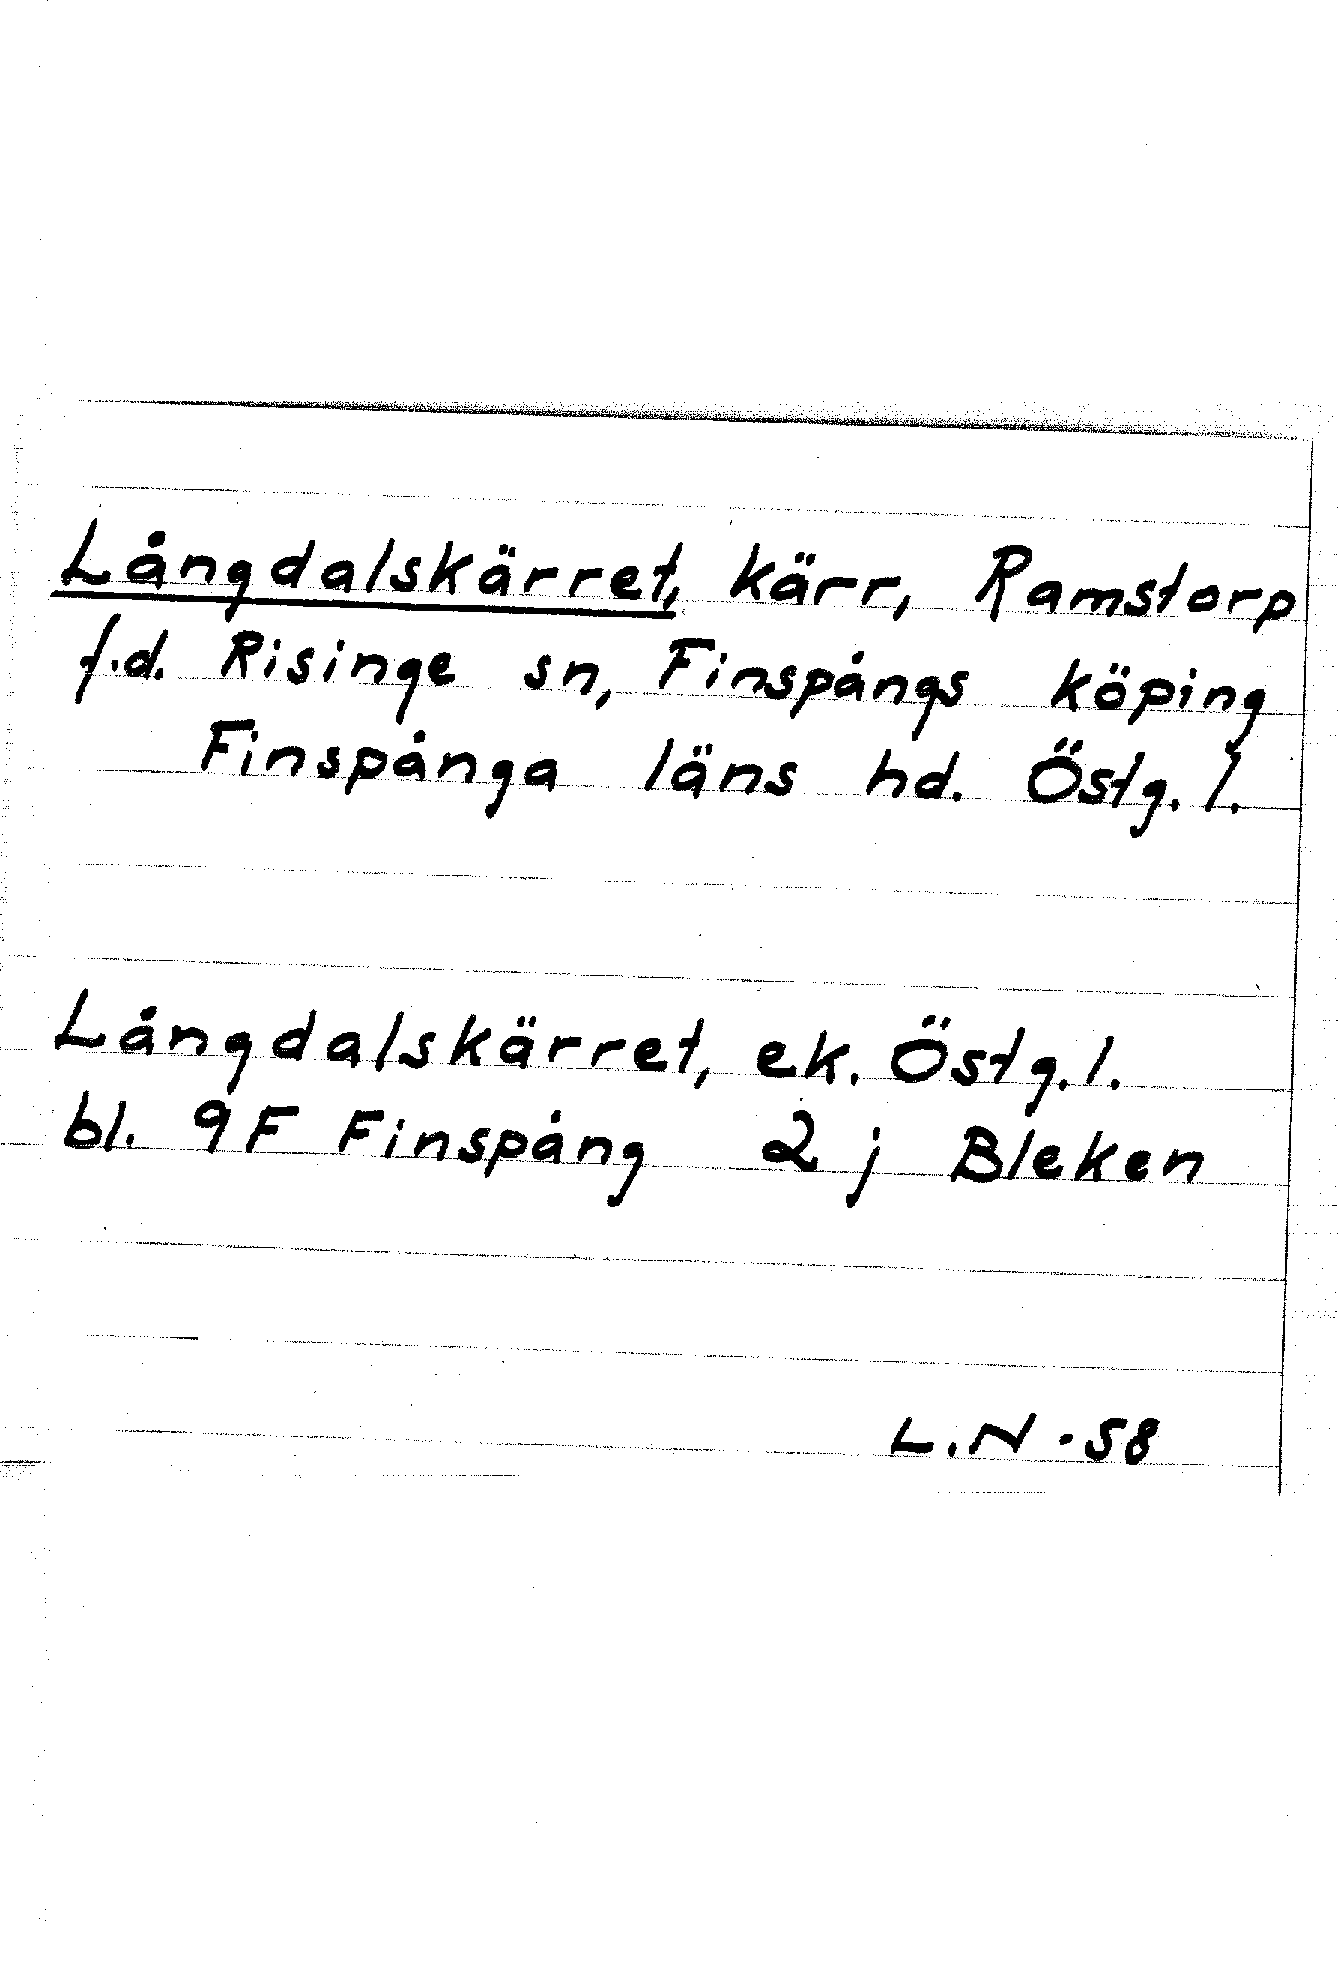 Långdalskärret, kärr, Ramstorp
f.d. Risinge sn, Finspångs köping
Finspånga läns hd. Östg. l.
Långdalskärret, ek. Östg. l.
bl. 9F Finspång 2 j Bleken
L.N. 58